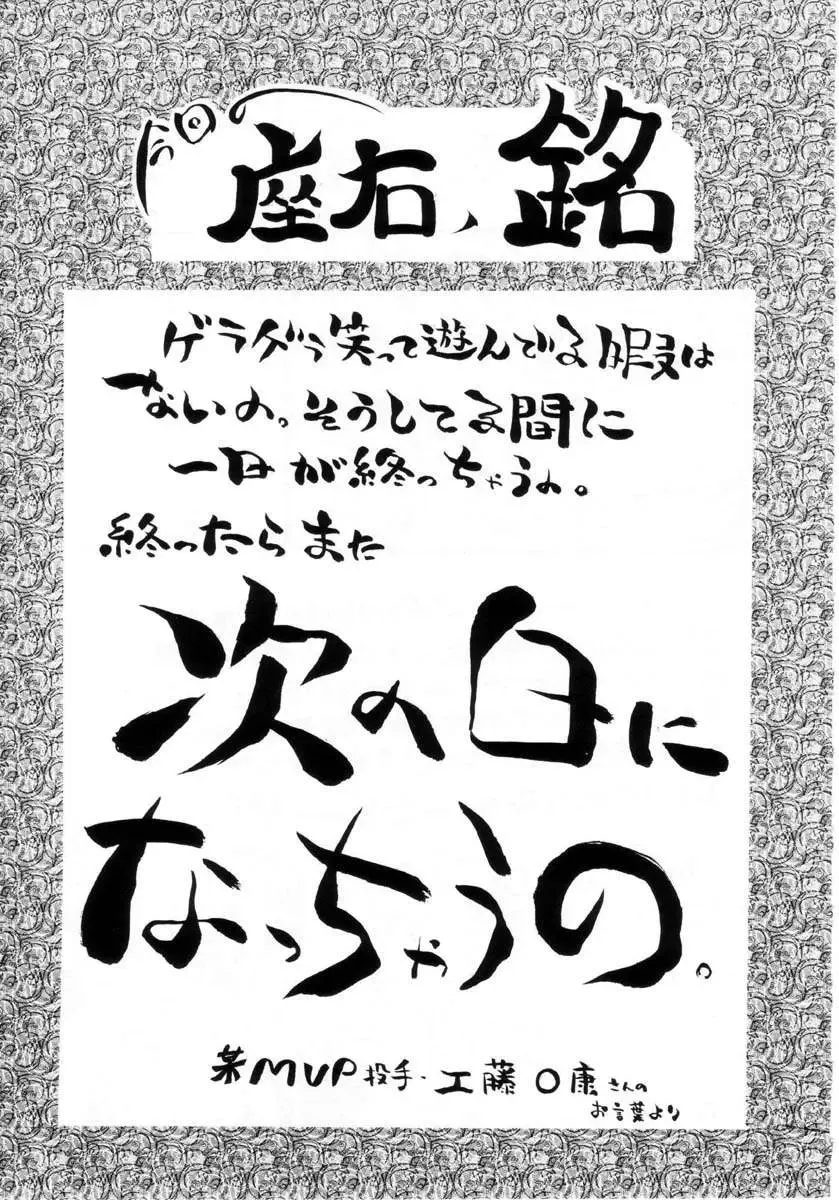 座右ノ銘
ゲラゲラ笑って遊んでる暇は
ないの。そうしてる間に
一日が終っちゃうの。
終ったらまた
次の日に
なっちゃうの。
某MVP投手・工藤〇康さんの
お言葉より